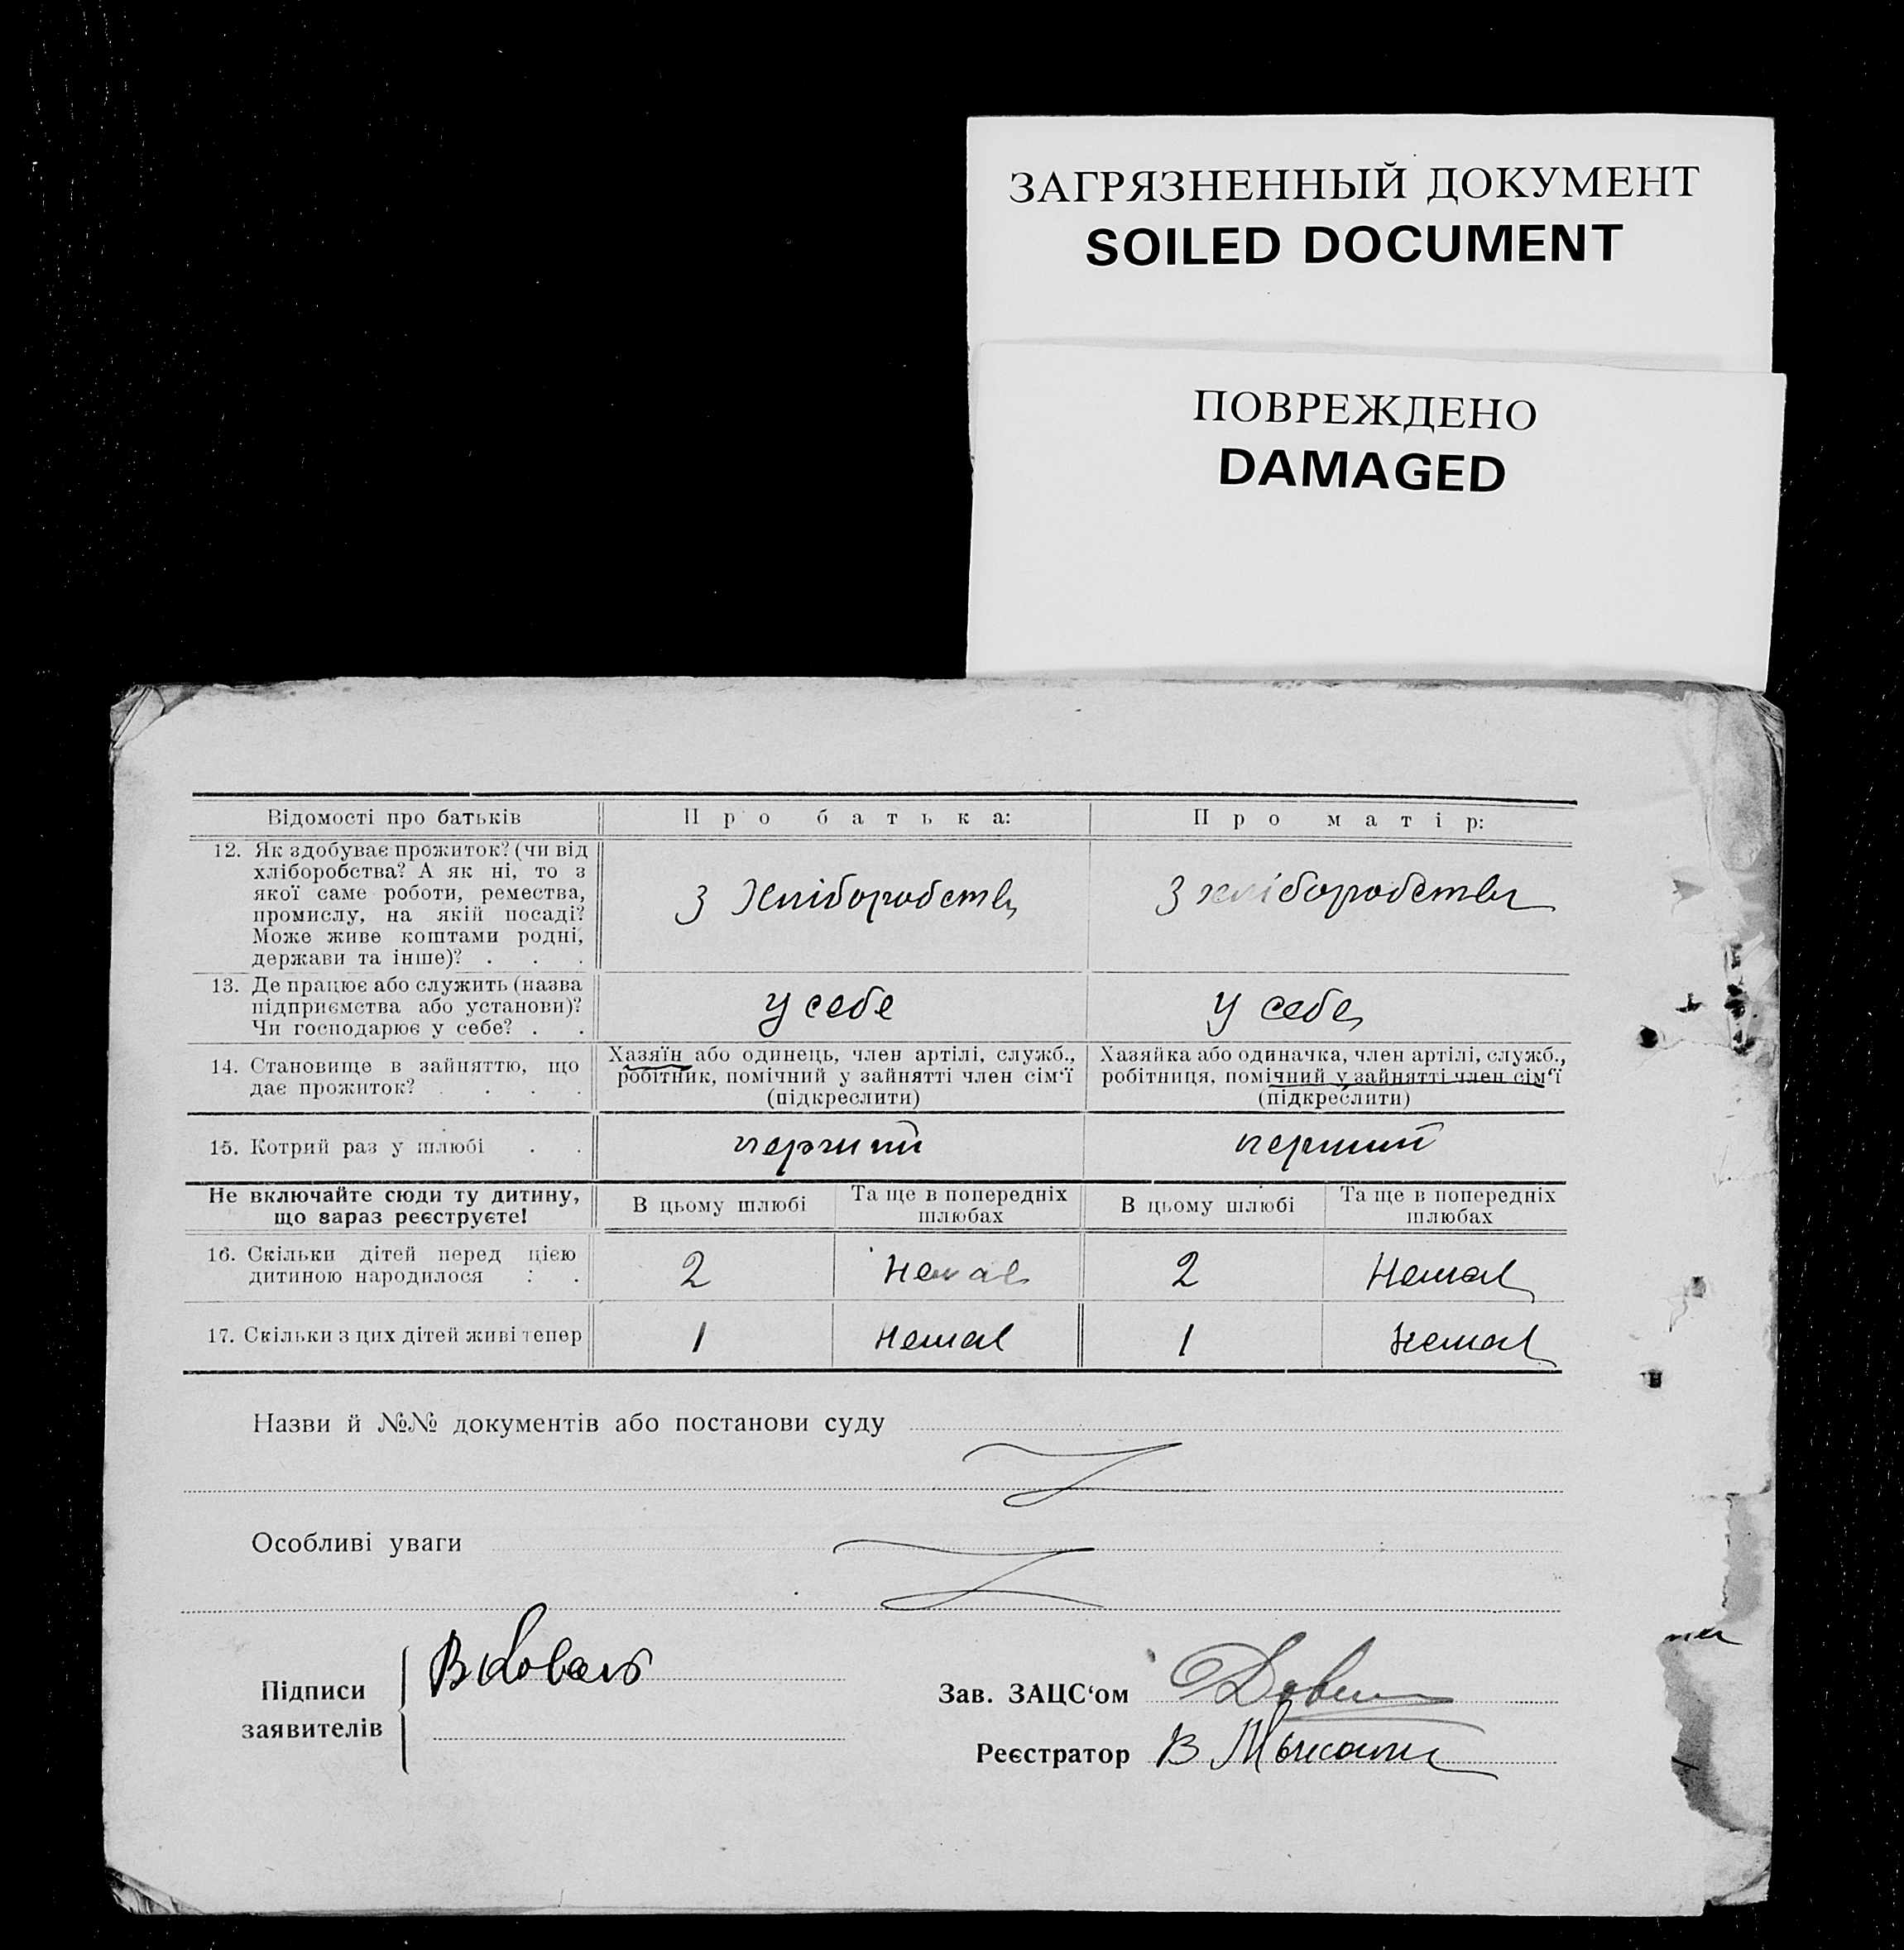 ЗАГРЯЗНЕННЫЙ ДОКУМЕНТ
SOILED DOCUMENT
ПОВРЕЖДЕНО
DAMAGED
Відомості про батьків
Про батька:
Про матір:
12. Як здобуває прожиток? (чи від
хліборобства? А як ні, то з
якої саме роботи, ремества,
промислу, на якій посаді?
Може живе коштами родні,
держави та інше)? . . .
З Хліборобства
З хліборобства
13. Де працює або служить (назва
підприємства або установи)?
Чи господарює у себе? . .
У себе
У себе
14. Становище в зайняттю, що
дає прожиток? . . . .
Хазяїн або одинець, член артілі, служб.,
робітник, помічний у зайнятті член сім‘ї
(підкреслити)
Хазяйка або одиначка, член артілі, служб.,
робітниця, помічний у зайнятті член сім‘ї
(підкреслити)
15. Котрий раз у шлюбі . .
перший
перший
Не включайте сюди ту дитину,
що зараз реєструєте!
В цьому шлюбі
Та ще в попередніх
шлюбах
В цьому шлюбі
Та ще в попередніх
шлюбах
16. Скільки дітей перед цією
дитиною народилося : .
2
Немає
2
Немає
17. Скільки з цих дітей живі тепер
1
Немає
1
Немає
Назви й №№ документів або постанови суду
Особливі уваги
Підписи
заявителів
В Коваль
Зав. ЗАЦС‘ом
Реєстратор В.